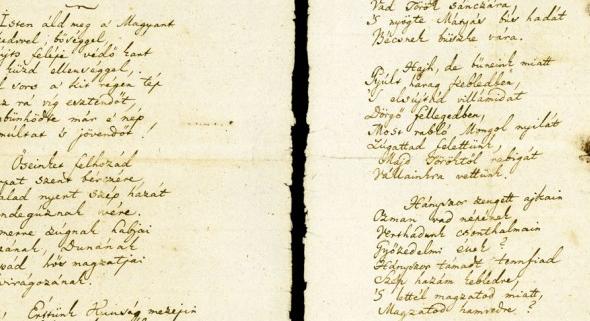 Isten áld meg a Magyart
edvvel, bőséggel,
yújts feléje védő kart
küzd ellenséggel;
l sors a' kit régen tép
z rá víg esztendőt,
bűnhödte már e' nép
múltat 's jövendőt!
Őseinket felhozád
rpat szent bérczére,
alad nyert szép hazát
ndegúznak vére.
merre zúgnak habjai
zának, Dunának
pád hős magzatjai
virágozának.
Értünk Kunság mezein
Vad Török sánczára,
'S nyögte Mátyás bús hadát
Bécsnek büszke vára.
Hajh, de bűneink miatt
Gyúlt harag kebledben,
'S elsújtád villámidat
Dörgő fellegedben,
Most rabló Mongol nyilát
Zúgattad felettünk,
Majd Töröktől rabigát
Vállainkra vettünk.
Hányszor zengett ajkain
Ozman vad népének
Vert hadunk csonthalmain
Győzedelmi ének?
Hányszor támadt tennfiad
Szép hazám kebledre,
'S lettél magzatod miatt,
Magzatod hamvedre?